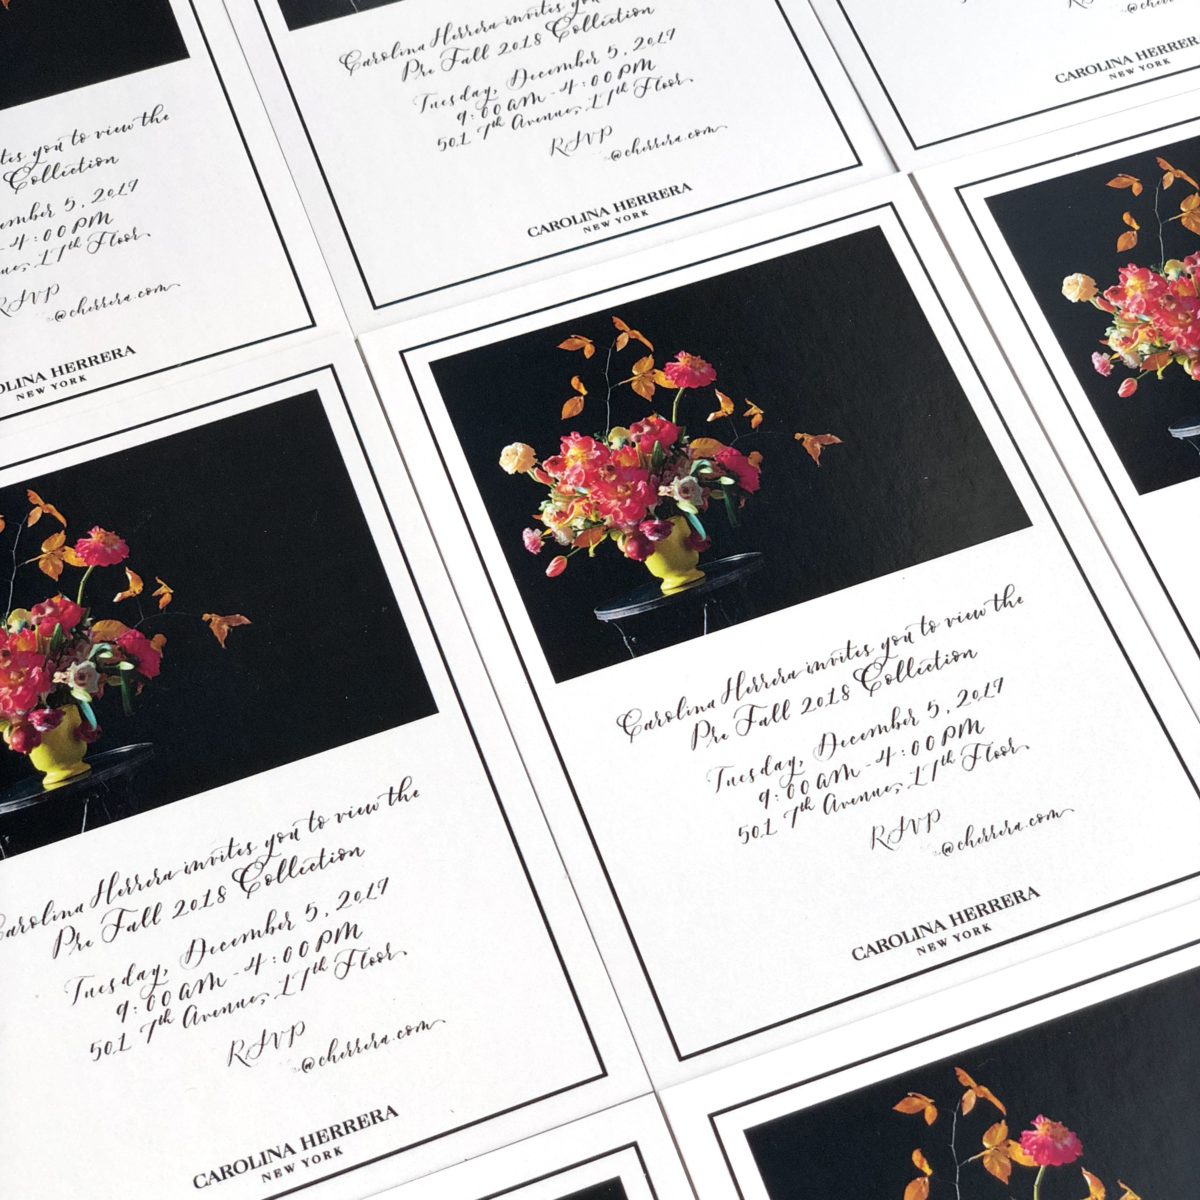 Carolina Herrera invites you
Pre Fall 2018 Collection
Tuesday, December 5, 2017
9:00 AM - 4:00 PM
501 7th Avenue, 17th Floor
RSVP
@cherrera.com
CAROLINA HERRERA
NEW YORK
@cherrera.com
CAROLINA HERRERA
NEW YORK
you to view the
Collection
5, 2017
4:00 PM
17th Floor
RSVP
@cherrera.com
HERRERA
NEW YORK
Carolina Herrera invites you to view the
Pre Fall 2018 Collection
Tuesday, December 5, 2017
9:00 AM - 4:00 PM
501 7th Avenue, 17th Floor
RSVP
@cherrera.com
CAROLINA HERRERA
NEW YORK
Carolina Herrera invites you to view the
Pre Fall 2018 Collection
Tuesday, December 5, 2017
9:00 AM - 4:00 PM
501 7th Avenue, 17th Floor
RSVP
@cherrera.com
CAROLINA HERRERA
NEW YORK